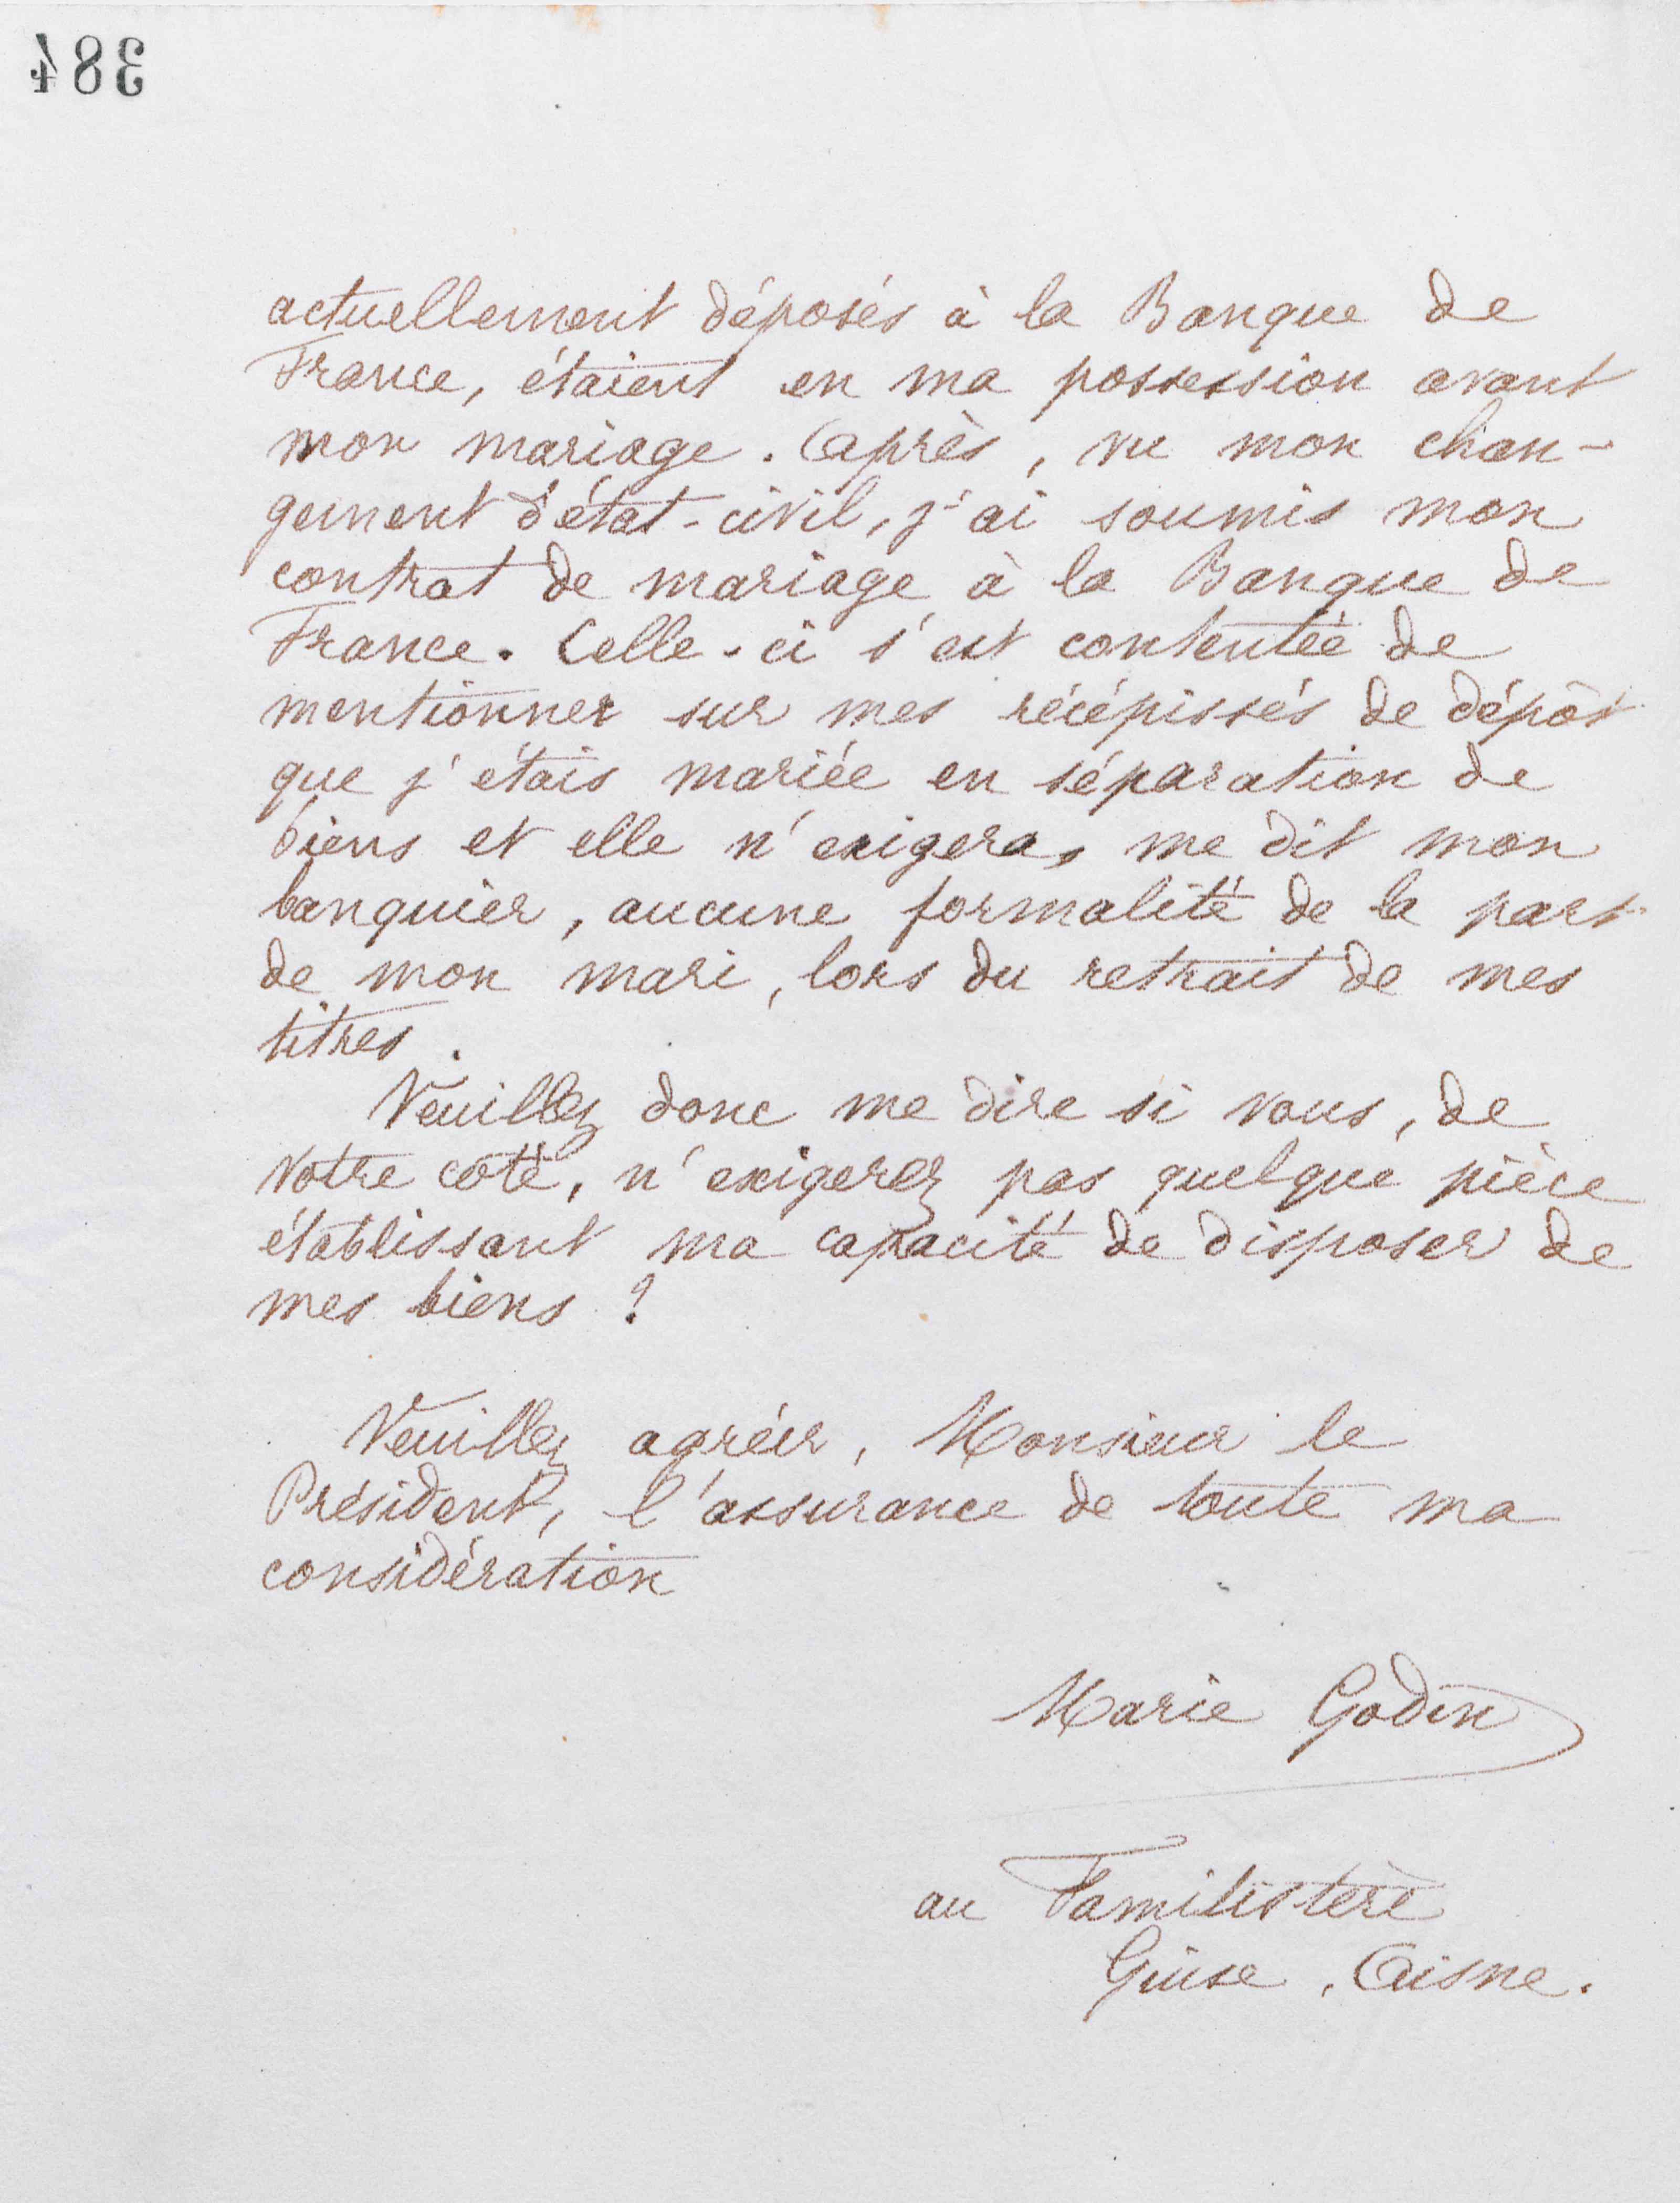 384
actuellement déposés à la Banque de
France, étaient en ma possession avant
mon mariage. Après, vu mon chan-
gement d'état-civil, j'ai soumis mon
contrat de mariage à la Banque de
France. Celle-ci s'est contentée de
mentionner sur mes récépissés de dépôt
que j'étais mariée en séparation de
biens et elle n'exigera, me dit mon
banquier, aucune formalité de la part
de mon mari, lors du retrait de mes
titres.
Veuillez donc me dire si vous, de
votre côté, n'exigerez pas quelque pièce
établissant ma capacité de disposer de
mes biens ?
Veuillez agréer, Monsieur le
Président, l'assurance de toute ma
considération
Marie Godin
au Familistère
Guise, Aisne.